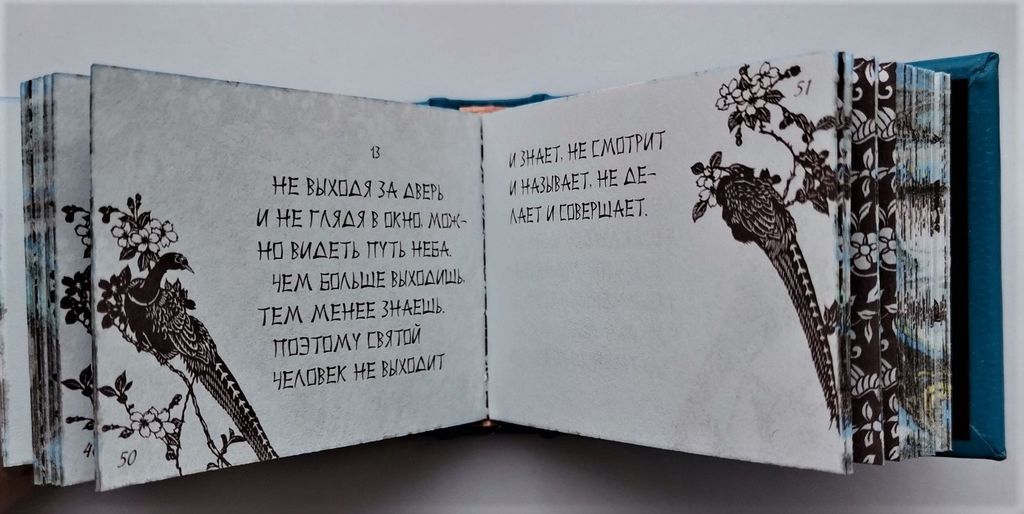 13
НЕ ВЫХОДЯ ЗА ДВЕРЬ
И НЕ ГЛЯДЯ В ОКНО, МОЖ-
НО ВИДЕТЬ ПУТЬ НЕБА.
ЧЕМ БОЛЬШЕ ВЫХОДИШЬ,
ТЕМ МЕНЕЕ ЗНАЕШЬ.
ПОЭТОМУ СВЯТОЙ
ЧЕЛОВЕК НЕ ВЫХОДИТ
50
51
И ЗНАЕТ, НЕ СМОТРИТ
И НАЗЫВАЕТ, НЕ ДЕ-
ЛАЕТ И СОВЕРШАЕТ.